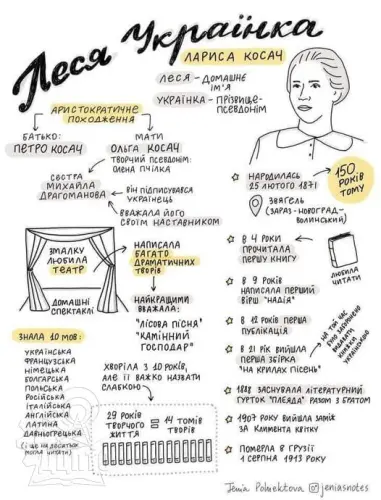 Леся Українка
ЛАРИСА КОСАЧ
ЛЕСЯ – ДОМАШНЄ
ІМ'Я
УКРАЇНКА – ПРІЗВИЩЕ-
ПСЕВДОНІМ
АРИСТОКРАТИЧНЕ
ПОХОДЖЕННЯ
БАТЬКО:
ПЕТРО КОСАЧ
МАТИ
ОЛЬГА КОСАЧ
ТВОРЧИЙ ПСЕВДОНІМ:
ОЛЕНА ПЧІЛКА
СЕСТРА
МИХАЙЛА
ДРАГОМАНОВА
ВІН ПІДПИСУВАВСЯ
УКРАЇНЕЦЬ
ВВАЖАЛА ЙОГО
СВОЇМ НАСТАВНИКОМ
ЗМАЛКУ
ЛЮБИЛА
ТЕАТР
ДОМАШНІ
СПЕКТАКЛІ
НАПИСАЛА
БАГАТО
ДРАМАТИЧНИХ
ТВОРІВ
НАЙКРАЩИМИ
ВВАЖАЛА:
"ЛІСОВА ПІСНЯ"
"КАМІННИЙ
ГОСПОДАР"
ЗНАЛА 10 МОВ:
УКРАЇНСЬКА
ФРАНЦУЗСЬКА
НІМЕЦЬКА
БОЛГАРСЬКА
ПОЛЬСЬКА
РОСІЙСЬКА
ІТАЛІЙСЬКА
АНГЛІЙСЬКА
ЛАТИНА
ДАВНЬОГРЕЦЬКА
(І ЩЕ НА ДЕСЯТЬОХ
МОГЛА ЧИТАТИ)
ХВОРІЛА З 10 РОКІВ,
АЛЕ ЇЇ ВАЖКО НАЗВАТИ
СЛАБКОЮ
29 РОКІВ
ТВОРЧОГО
ЖИТТЯ
=
14 ТОМІВ
ТВОРІВ
НАРОДИЛАСЬ
25 ЛЮТОГО 1871
150
РОКІВ
ТОМУ
ЗВЯГЕЛЬ
(ЗАРАЗ – НОВОГРАД-
ВОЛИНСЬКИЙ)
В 4 РОКИ
ПРОЧИТАЛА
ПЕРШУ КНИГУ
ЛЮБИЛА
ЧИТАТИ
В 9 РОКІВ
НАПИСАЛА ПЕРШИЙ
ВІРШ "НАДІЯ"
В 12 РОКІВ ПЕРША
ПУБЛІКАЦІЯ
В 21 РІК ВИЙШЛА
ПЕРША ЗБІРКА
"НА КРИЛАХ ПІСЕНЬ"
НА ТОЙ ЧАС
БУЛО ЗАБОРОНЕНО
ВИДАВАТИ
КНИЖКИ
УКРАЇНСЬКОЮ
1888 ЗАСНУВАЛА ЛІТЕРАТУРНИЙ
ГУРТОК "ПЛЕЯДА" РАЗОМ З БРАТОМ
1907 РОКУ ВИЙШЛА ЗАМІЖ
ЗА КЛИМЕНТА КВІТКУ
ПОМЕРЛА В ГРУЗІЇ
1 СЕРПНЯ 1913 РОКУ
Jenia Polosektova @jeniasnotes